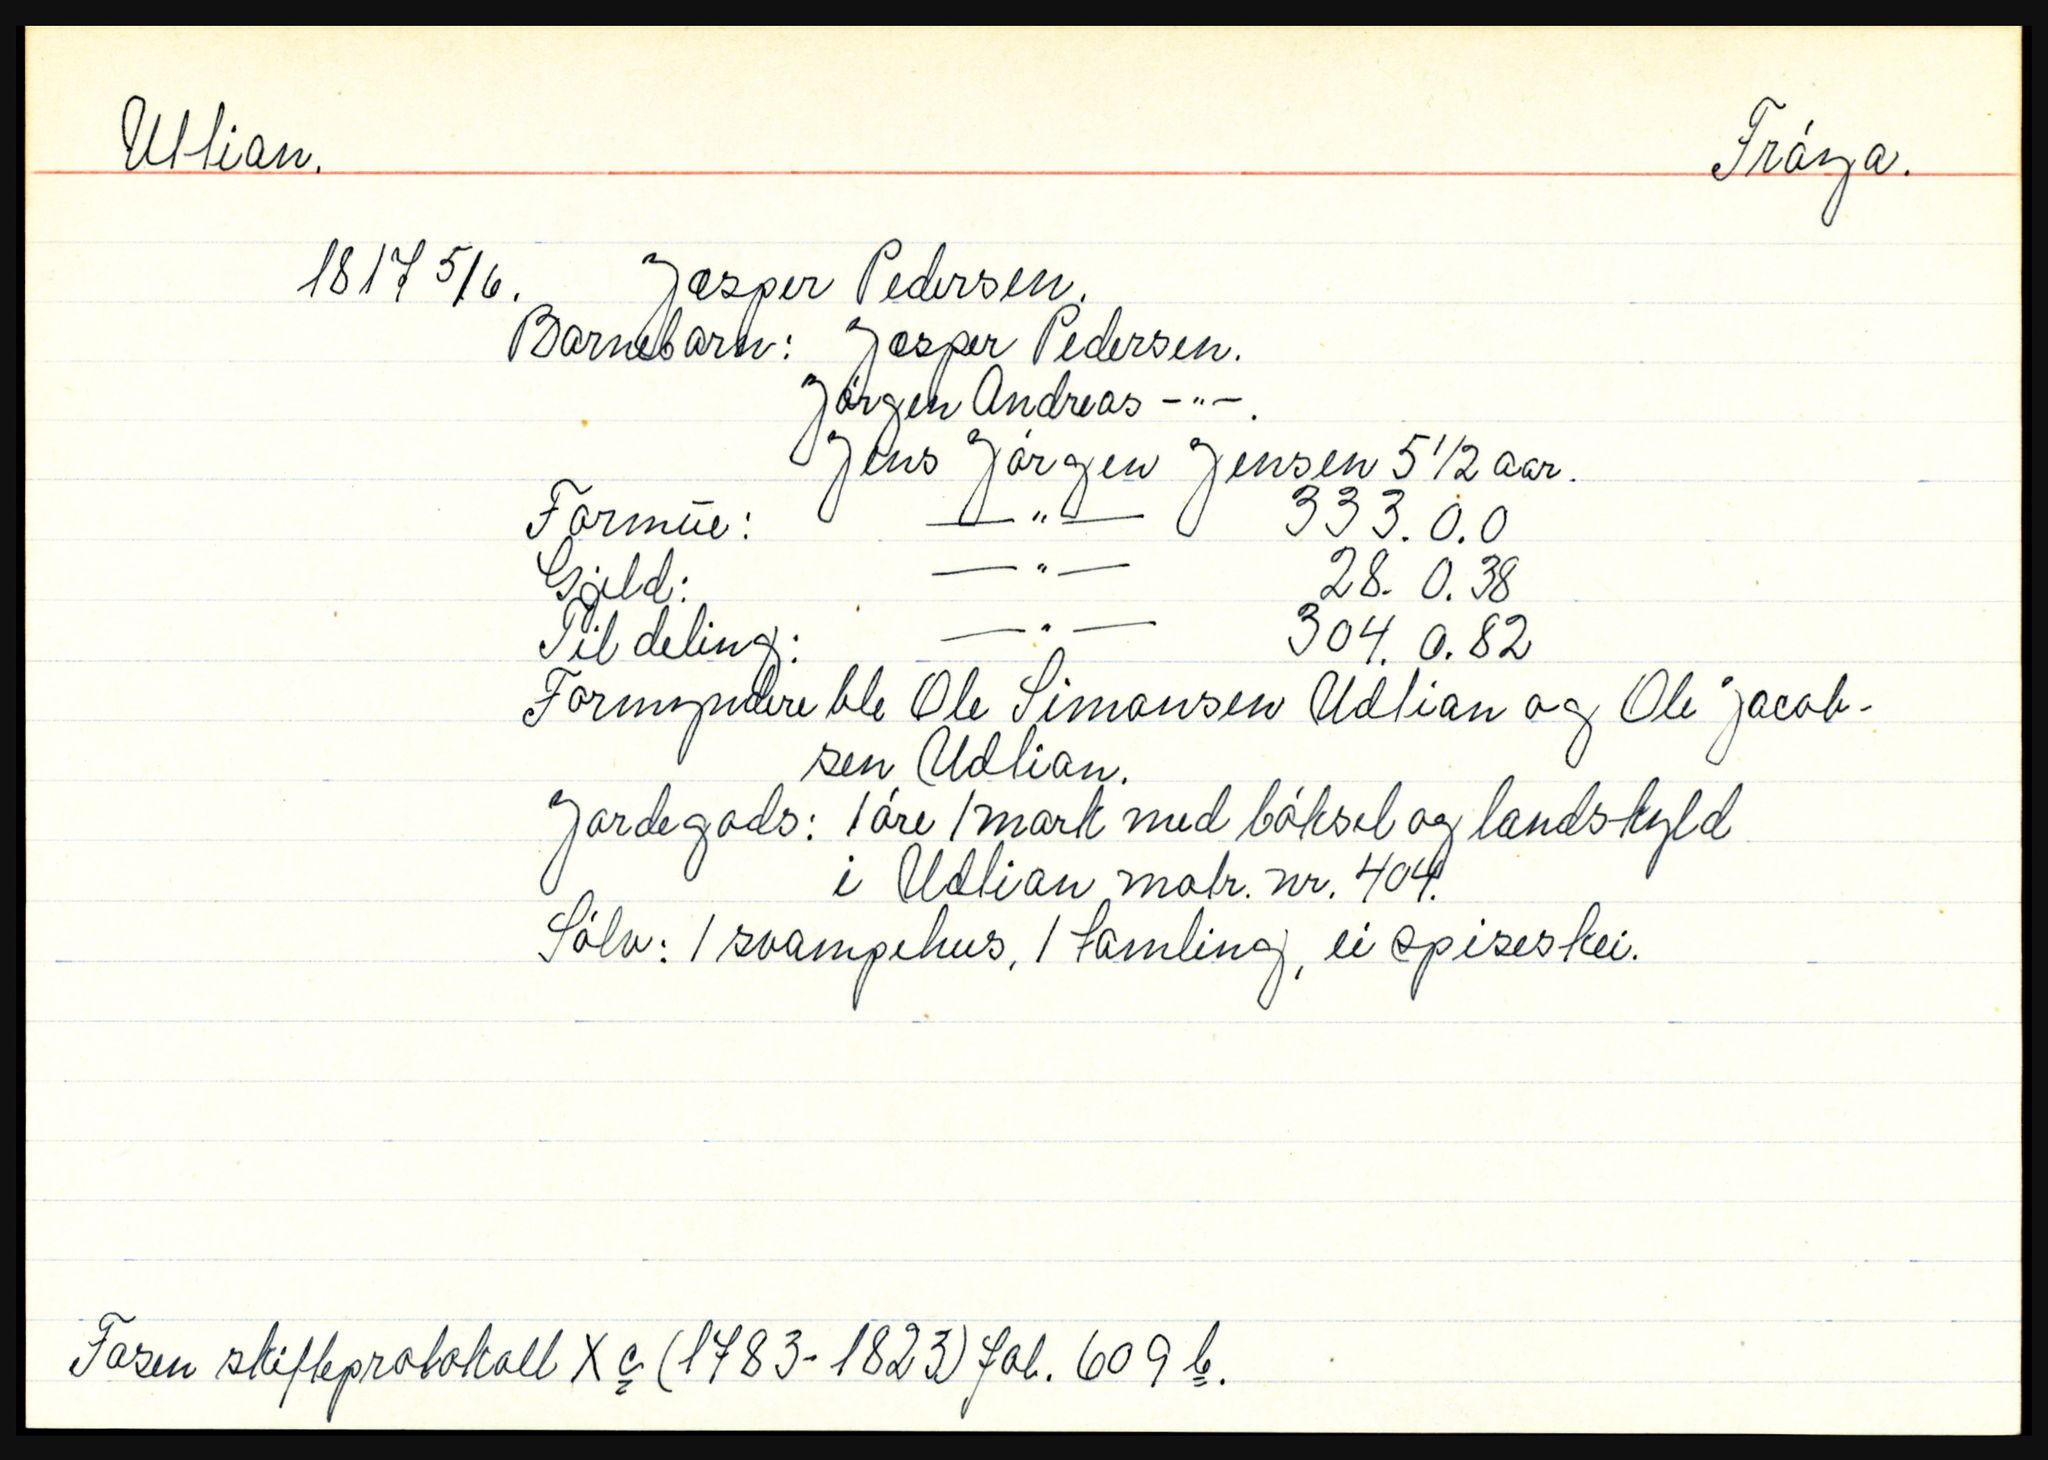 Utlian. Frøya.
1817 5/6. Jesper Pedersen.
Barnebarn: Jesper Pedersen.
Jørgen Andreas -"-.
Jens Jørgen Jensen 5 1/2 aar.
Formue: —"— 333. 0. 0
Gjeld: —"— 28. 0. 38
Til deling: —"— 304. 0. 82
Formyndere ble Ole Simonsen Udlian og Ole Jacob-
sen Udlian.
Jordegods: 1 øre 1 mark med bøksel og landskyld
i Udlian matr. nr. 404.
Sølv: 1 svampehus, 1 tomling, ei spiseskei.
Fosen skifteprotokoll X c (1783-1823) fol. 609 b.